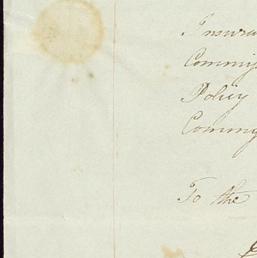 Insura
Commis
Policy
Commis
To the